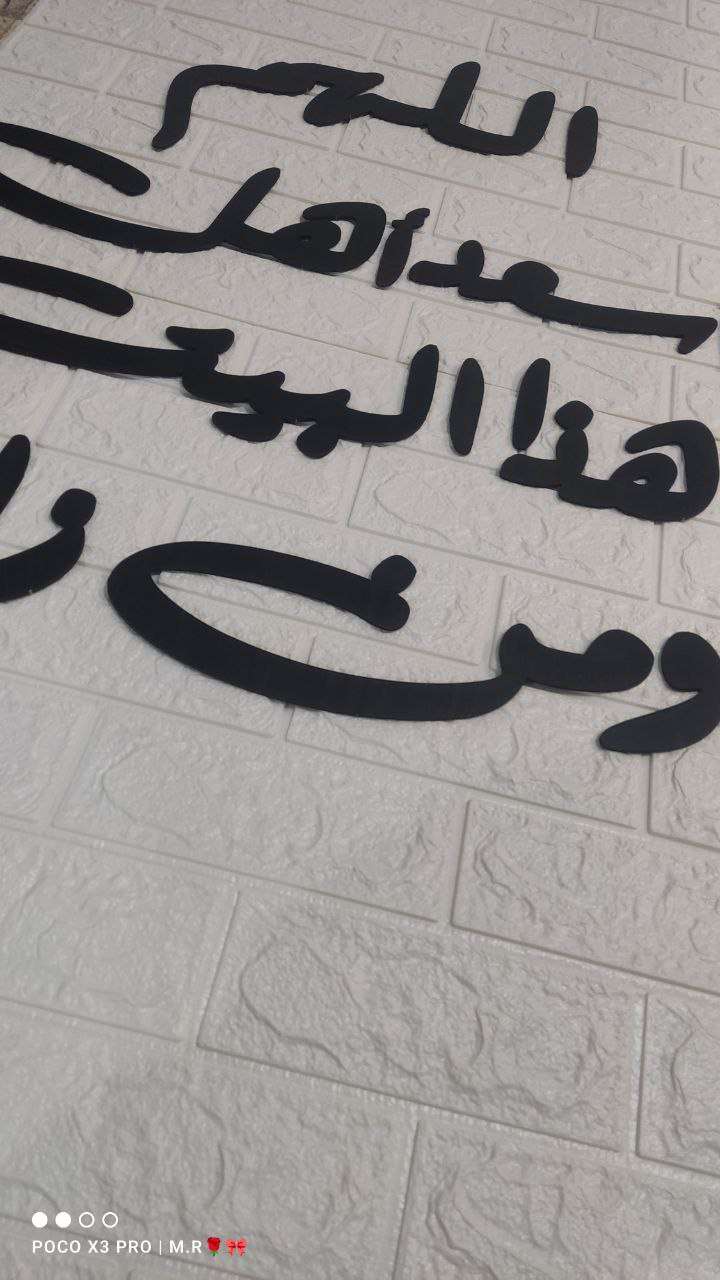 اللهم
سعد أهل
هذا البيت
ومن
POCO X3 PRO | M.R🌹🎀